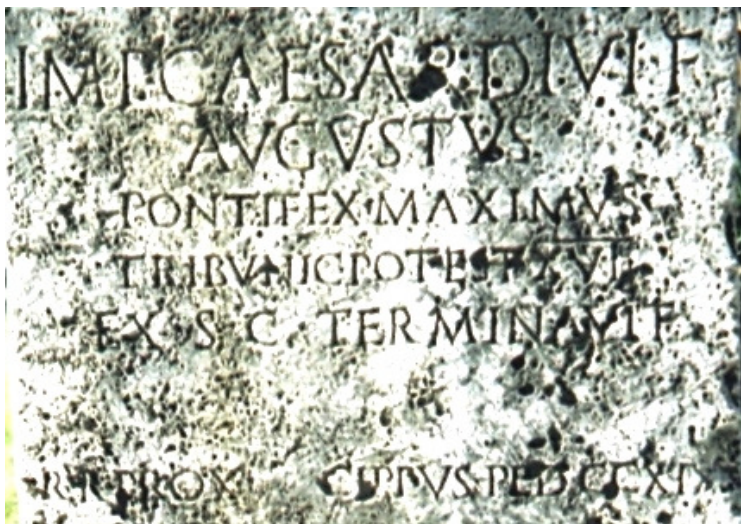 IMP CAESAR DIVI F
AVGVSTVS
PONTIFEX MAXIMVS
TRIBVNIC POTEST XVII
EX S C TERMINAVIT
R R PROX CIPPVS PED